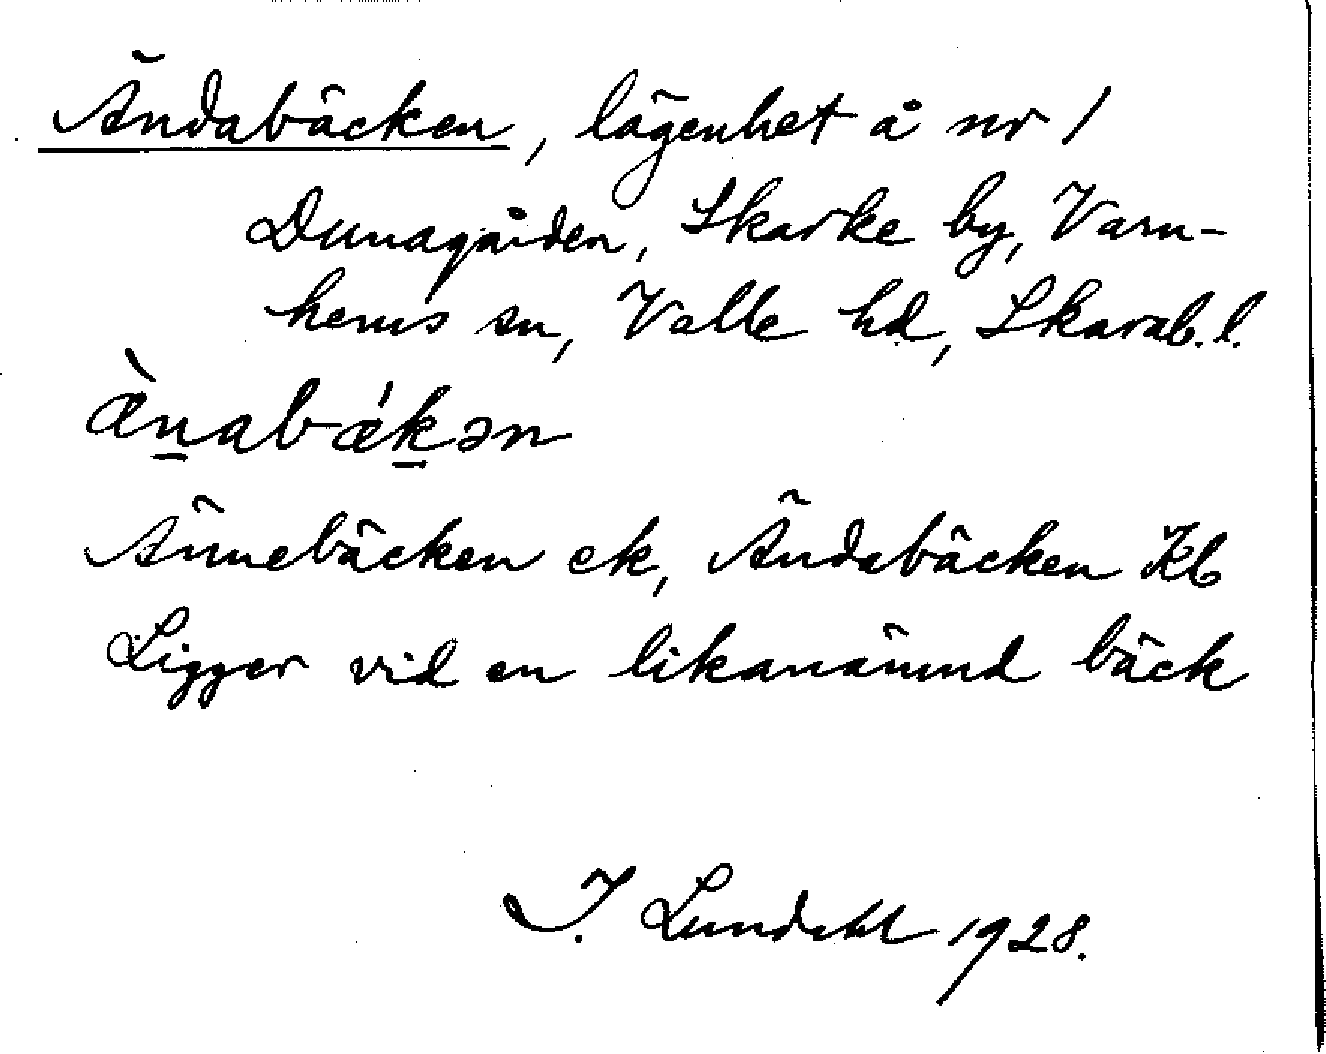 Ändabäcken, lägenhet å nr 1
Dunagården, Skarke by, Varn-
hems sn, Valle hd, Skarab. l.
æ̀n̲abǽk̲ən
Ännebäcken ek, Ändabäcken Kb
Ligger vid en likanämnd bäck
I. Lundahl 1928.